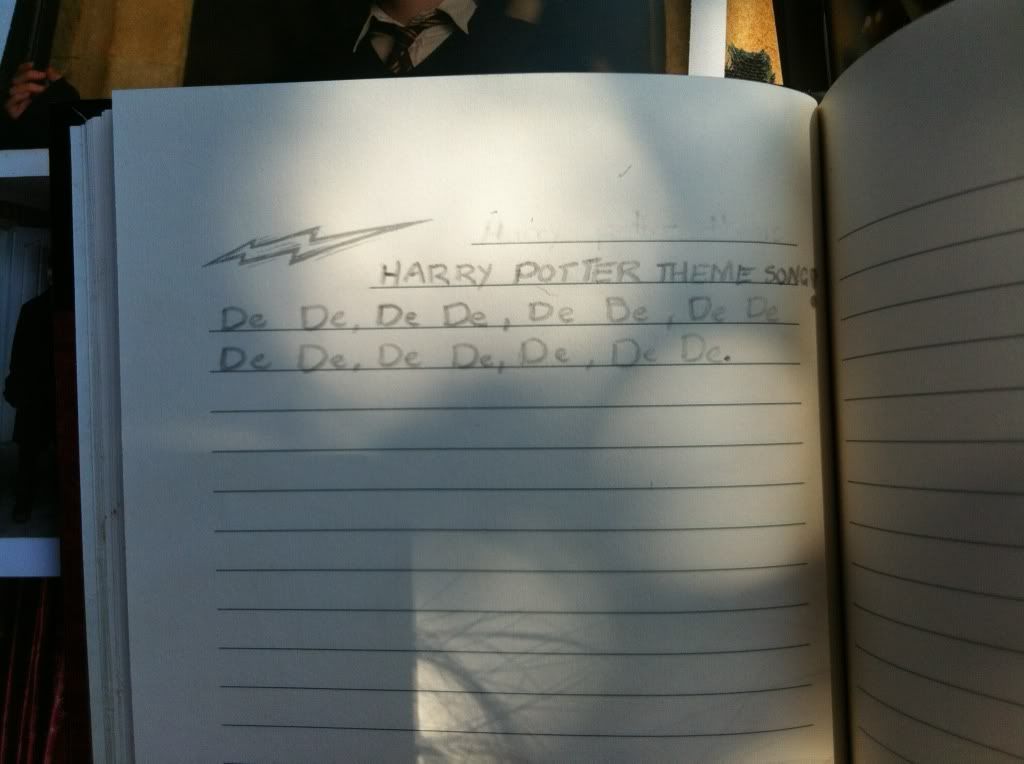 HARRY POTTER THEME SONG!
De De, De De, De De, De De
De De, De De, De, De De.